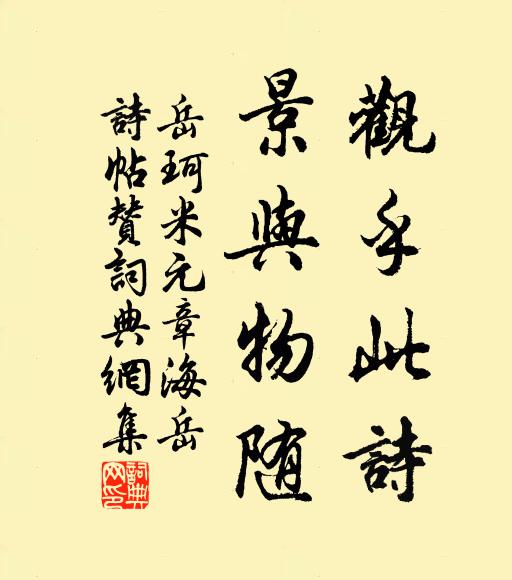 觀乎此詩
景與物随
岳珂米元章海岳
詩帖贊詞典網集
詞典
网印